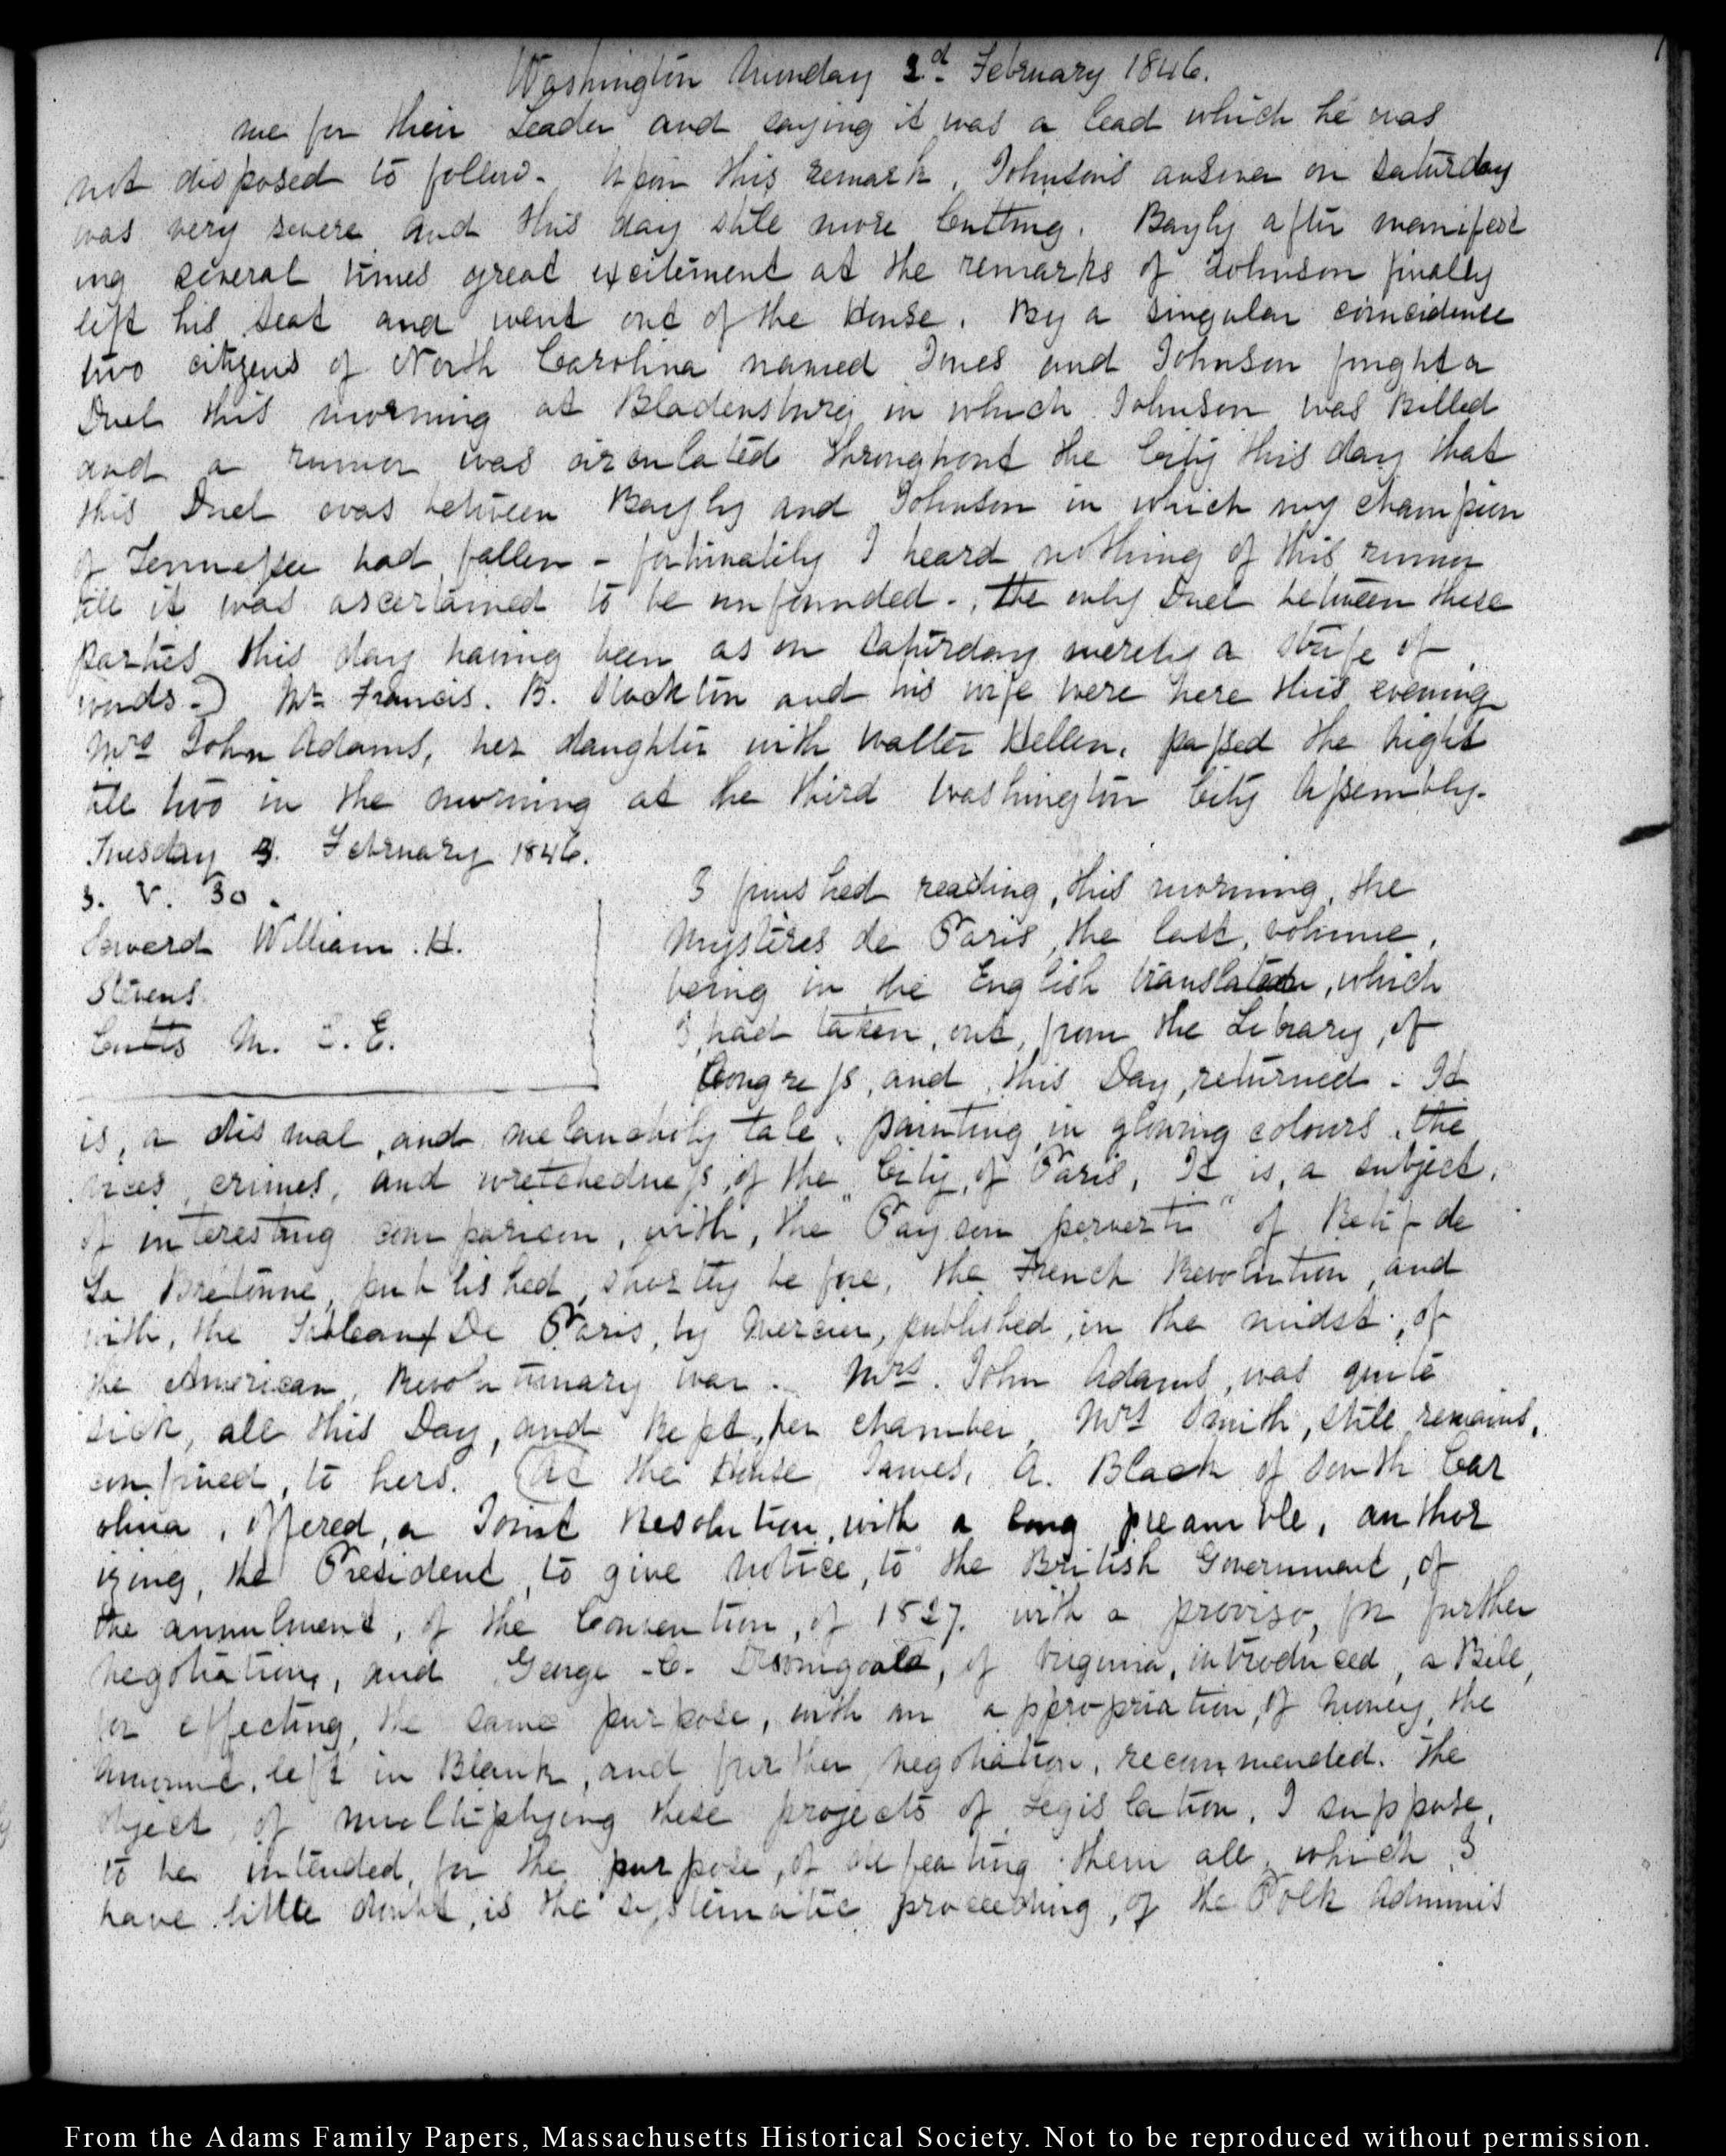 Washington Monday 2d. February 1846.
me for their Leader and saying it was a lead which he was
not disposed to follow - Upon this remark, Johnson's answer on Saturday
was very severe and this day still more Cutting. Bayly after manifest
ing several times great excitement at the remarks of Johnson finally
left his seat and went out of the House. By a singular coincidence
two citizens of North Carolina named Jones and Johnson fought a
Duel this morning at Bladensburg in which Johnson was Killed
and a rumor was circulated throughout the City this day that
this Duel was between Bayly and Johnson in which my champion
of Tennessee had fallen - fortunately I heard nothing of this rumor
till it was ascertained to be unfounded -. the only Duel between these
parties this day having been as on Saturday merely a strife of
words -) Mr. Francis. B. Stockton and his wife were here this evening
Mrs John Adams, her daughter with Walter Hellen, passed the night
till two in the morning at the third Washington City Assembly.
Tuesday 3. February 1846.
3. V. 30.
Seward William. H.
Stevens
Curtis M. C. E.
I finished reading, this morning, the
Mystères de Paris, the last, volume,
being in the English translation, which
I, had taken, out, from the Library, of
Congress, and, this Day, returned - It
is, a dismal, and melancholy tale, painting, in glowing colours, the
vices, crimes, and wretchedness, of the City, of Paris, It is, a subject,
of interesting comparison, with, the "Paysan perverti" of Retif de
La Bretonne, published, shortly before, the French Revolution, and
with, the Tableaux De Paris, by Mercier, published, in the midst, of
the American, Revolutionary war. Mrs. John Adams, was quite
sick, all this Day, and Kept, her chamber, Mrs Smith, still remains,
confined, to hers. (At the House, James, A. Black of South Car
olina, offered, a Joint Resolution, with a long preamble, author
izing, the President, to give notice, to the British Government, of
the annulment, of the Convention, of 1827. with a proviso, for further
negotiation, and George C. Dromgoole, of Virginia, introduced, a Bill,
for effecting, the same purpose, with an appropriation, of Money, the
Amount, left in Blank, and further negotiation, recommended. The
object, of multiplying these projects of Legislation, I suppose,
to be intended, for the purpose, of defeating them all, which, I
have little doubt, is the systematic proceeding, of the Polk Adminis
From the Adams Family Papers, Massachusetts Historical Society. Not to be reproduced without permission.